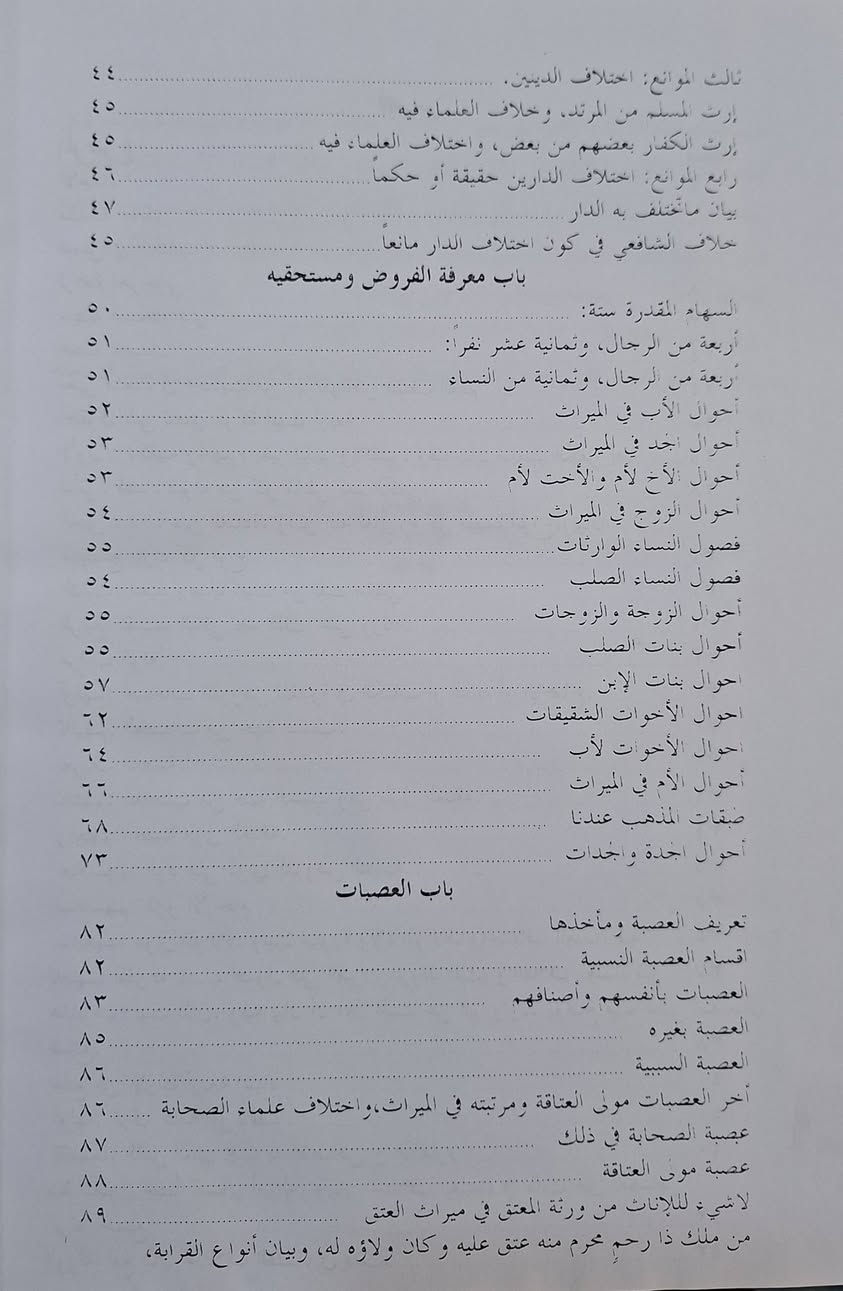 ثالث الموانع: اختلاف الدينين. ٤٤
إرث المسلم من المرتد، وخلاف العلماء فيه ٤٥
إرث الكفار بعضهم من بعض، واختلاف العلماء فيه ٤٥
رابع الموانع: اختلاف الدارين حقيقة أو حكماً ٤٦
بيان ماتختلف به الدار ٤٧
خلاف الشافعي في كون اختلاف الدار مانعاً ٤٥
باب معرفة الفروض ومستحقيه
السهام المقدرة ستة: ٥٠
أربعة من الرجال، وثمانية عشر نفراً: ٥١
أربعة من الرجال، وثمانية من النساء ٥١
أحوال الأب في الميراث ٥٢
أحوال الجد في الميراث ٥٣
أحوال الأخ لأم والأخت لأم ٥٣
أحوال الزوج في الميراث ٥٤
فصول النساء الوارثات ٥٥
فصول النساء الصلب ٥٤
أحوال الزوجة والزوجات ٥٥
أحوال بنات الصلب ٥٥
احوال بنات الإبن ٥٧
احوال الأخوات الشقيقات ٦٢
احوال الأخوات لأب ٦٤
أحوال الأم في الميراث ٦٦
طبقات المذهب عندنا ٦٨
أحوال الجدة والجدات ٧٣
باب العصبات
تعريف العصبة ومأخذها ٨٢
اقسام العصبة النسبية ٨٢
العصبات بأنفسهم وأصنافهم ٨٣
العصبة بغيره ٨٥
العصبة السببية ٨٦
أخر العصبات مولى العتاقة ومرتبته في الميراث،واختلاف علماء الصحابة ٨٦
عصبة الصحابة في ذلك ٨٧
عصبة مولى العتاقة ٨٨
لاشيء للإناث من ورثة المعتق في ميراث العتق ٨٩
من ملك ذا رحمٍ محرم منه عتق عليه وكان ولاؤه له، وبيان أنواع القرابة،